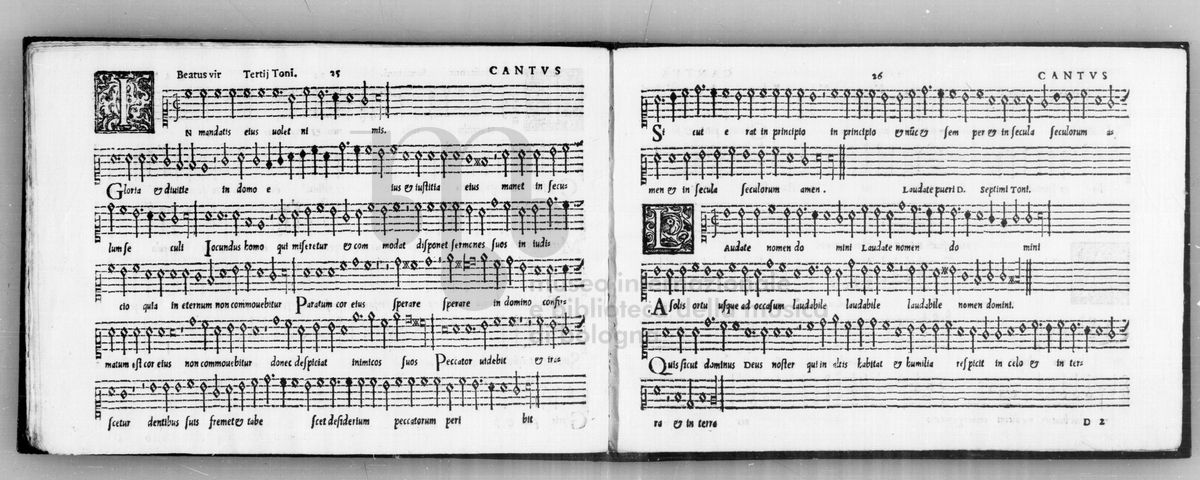 Beatus vir Tertij Toni. 25 CANTVS
IN mandatis eius uolet ni mis.
Gloria & diuitie in domo e ius & iustitia eius manet in secu=
lum se culi Iocundus homo qui miseretur & com modat disponet sermones suos in iudi=
cio quia in eternum non commouebitur Paratum cor eius sperare sperare in domino confir=
matum est cor eius non commouebitur donec despiciat inimicos suos Peccator uidebit & iras
scetur dentibus suis fremet & tabe scet desiderium peccatorum peri bit
26 CANTVS
Si cut e rat in principio in principio & nũc & sem per & in secula seculorum a=
men & in secula seculorum amen. Laudate pueri D. Septimi Toni.
LAudate nomen do mini Laudate nomen do mini
A solis ortu usque ad occasum laudabile laudabile laudabile nomen domini.
Quis sicut dominus Deus noster qui in altis habitat & humilia respicit in celo & in ter=
ra & in terra D 2
museo internazionale
e biblioteca della musica
di bologna